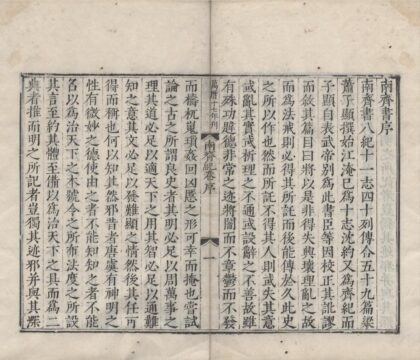 南齊書序
南齊書八紀十一志四十列傳合五十九篇梁
蕭子顯撰始江淹已爲十志沈約又爲齊紀而
子顯自表武帝别爲此書臣等因校正其訛謬
而敘其篇目曰將以是非得失興壞理亂之故
而爲法戒則必得其所託而後能傳於久此史
之所以作也然而所託不得其人則或失其意
或亂其實或析理之不通或設辭之不善故雖
有殊功韙德非常之迹將闇而不章鬱而不發
萬曆十年刊 南齊書序 一
而檮杌嵬瑣姦回凶慝之形可幸而掩也嘗試
論之古之所謂良史者其明必足以周萬事之
理其道必足以適天下之用其智必足以通難
知之意其文必足以發難顯之情然後其任可
得而稱也何以知其然邪昔者唐虞有神明之
性有微妙之德使由之者不能知知之者不能
名以爲治天下之本號令之所布法度之所設
其言至約其體至備以爲治天下之具而爲二
典者推而明之所記者豈獨其迹邪并與其深